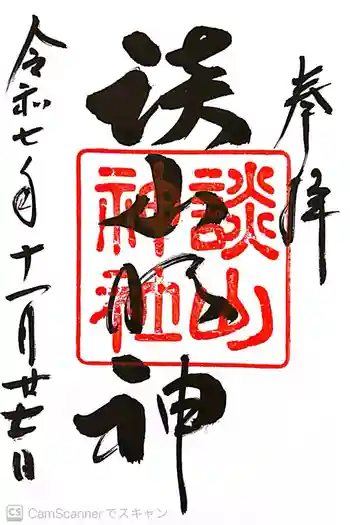 奉拝
談山明神
談山神社
令和七年十一月廿七日
CS CamScannerでスキャン